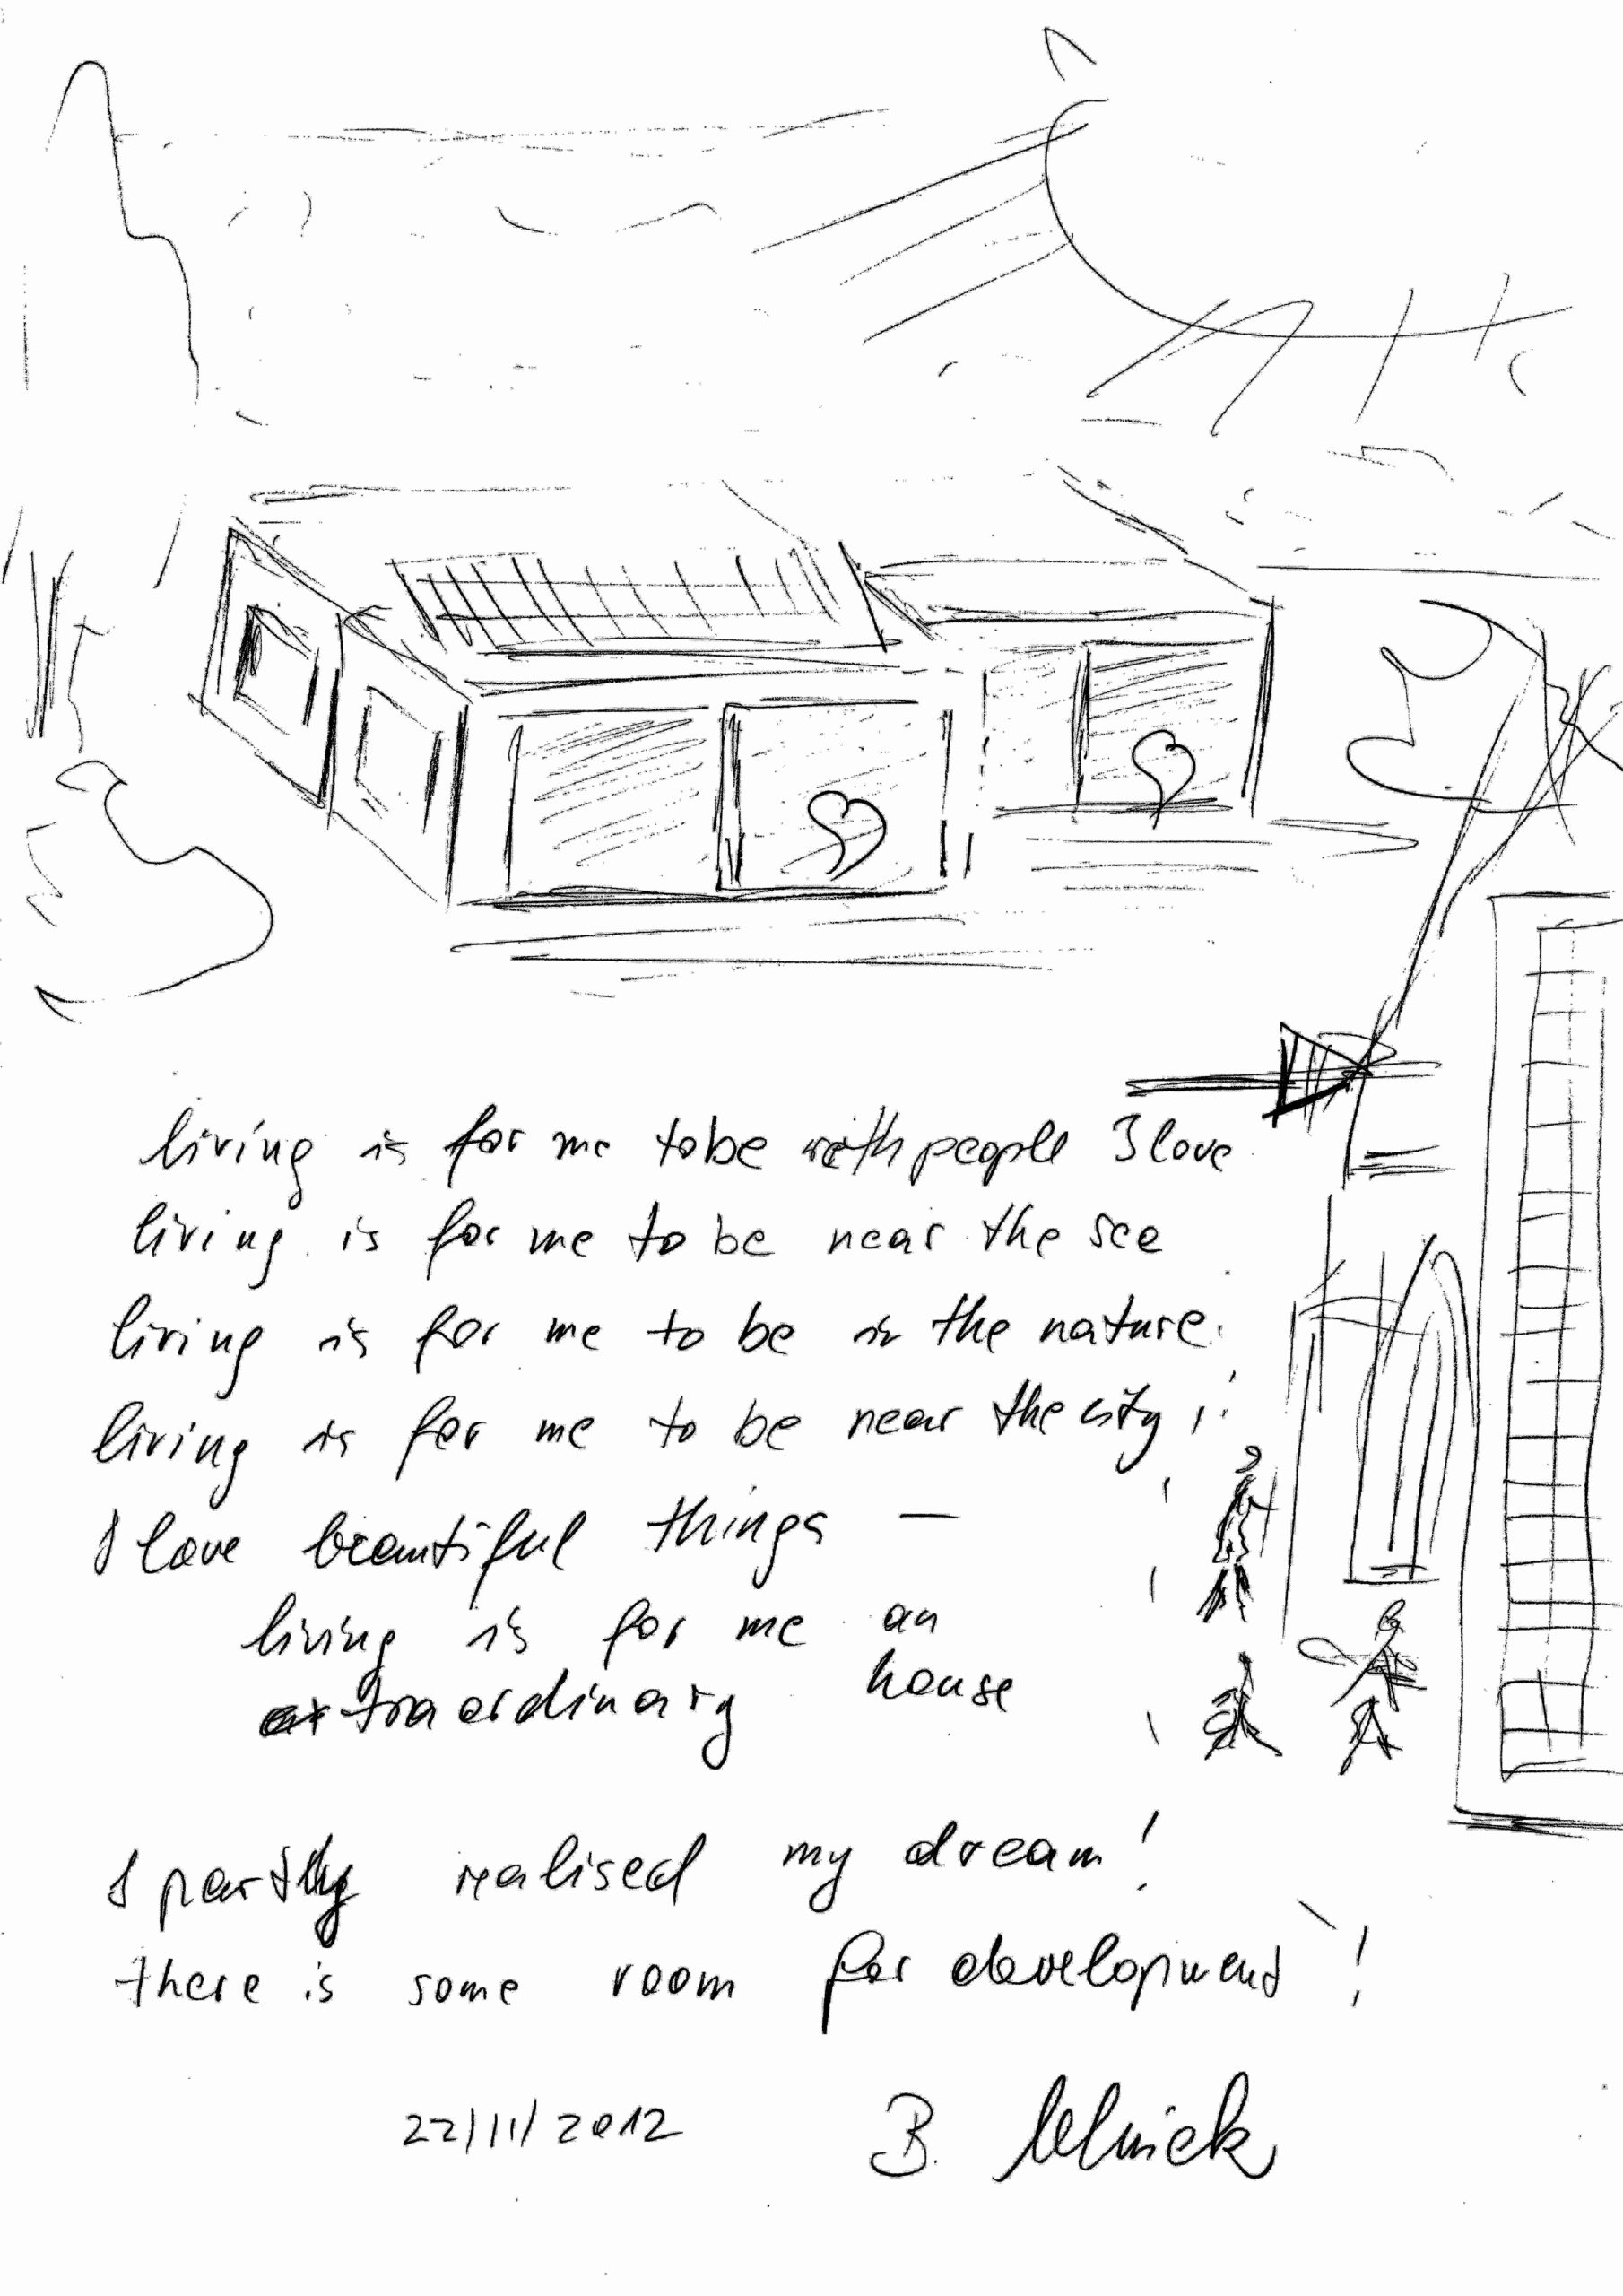 living is for me to be with people I love
living is for me to be near the see
living is for me to be in the nature.
living is for me to be near the city !
I love beautiful things —
living is for me an
extraordinary house
I partly realised my dream!
there is some room for development !
22/11/2012 B.